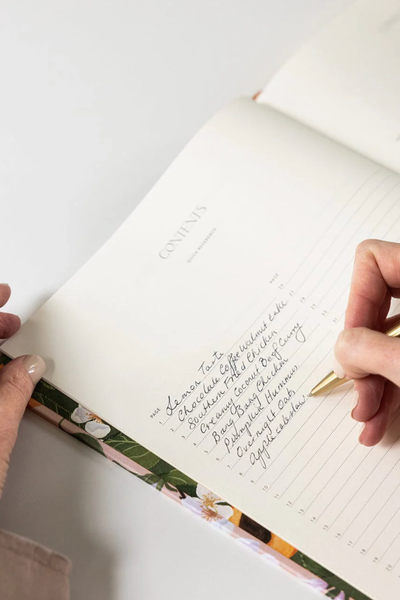 CONTENTS
QUICK REFERENCE
PAGE
PAGE
Lemon Tarts
Chocolate Coffee Walnut Cake
Southern Fried Chicken
Creamy Coconut Beef Curry
Bang Bang Chicken
Pumpkin Hummus
Overnight Oats
Apple coleslaw